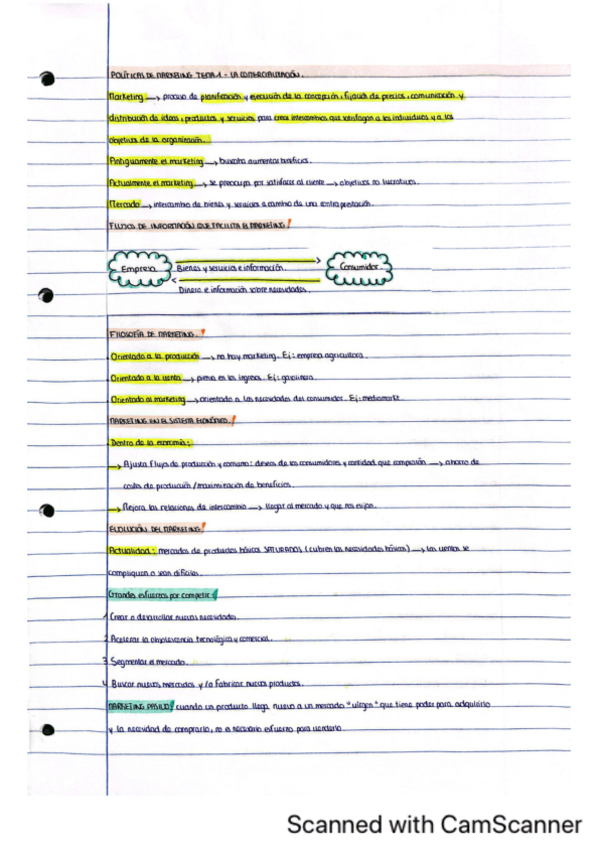 POLÍTICAS DE MARKETING TEMA 1 - LA COMERCIALIZACIÓN.
Marketing → proceso de planificación y ejecución de la concepción, fijación de precios, comunicación y
distribución de ideas, productos y servicios para crear intercambios que satisfagan a los individuos y a los
objetivos de la organización.
Antiguamente el marketing → buscaba aumentar beneficios.
Actualmente el marketing → se preocupa por satisfacer al cliente → objetivos no lucrativos.
Mercado → intercambio de bienes y servicios a cambio de una contraprestación.
FLUJOS DE INFORMACIÓN QUE FACILITA EL MARKETING!
Empresa Bienes y servicios e información. Consumidor
Dinero e información sobre necesidades.
FILOSOFÍA DE MARKETING.!
Orientado a la producción → no hay marketing. Ej: empresa agricultora.
Orientado a la venta → prima en los ingresos. Ej: gasolinera.
Orientado al marketing → orientado a las necesidades del consumidor. Ej: mediamarkt.
MARKETING EN EL SISTEMA ECONÓMICO.!
Dentro de la economía:
→ Ajusta flujo de producción y consumo: deseos de los consumidores y cantidad que comprarán → ahorro de
costes de producción / maximización de beneficios.
→ Mejora las relaciones de intercambio → llegar al mercado y que nos elijan.
EVOLUCIÓN DEL MARKETING!
Actualidad: mercados de productos básicos SATURADOS (cubren las necesidades básicas) → las ventas se
complican o sean difíciles.
Grandes esfuerzos por competir:
1 Crear o desarrollar nuevas necesidades.
2 Acelerar la obsolescencia tecnológica y comercial.
3 Segmentar el mercado.
4 Buscar nuevos mercados y/o fabricar nuevos productos.
MARKETING PASIVO! cuando un producto llega nuevo a un mercado "virgen" que tiene poder para adquirirlo
y la necesidad de comprarlo, no es necesario esfuerzo para venderlo.
Scanned with CamScanner